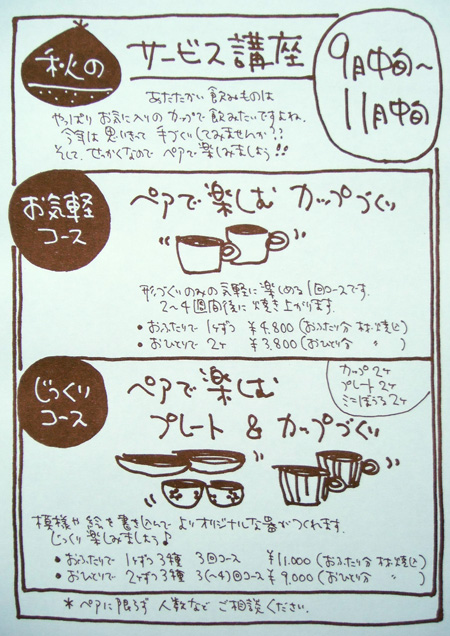 秋の
サービス講座
9月中旬～
11月中旬
あたたかい飲みものは
やっぱりお気に入りのカップで飲みたいですよね。
今年は思いきって手づくりしてみませんか??
そして、せっかくなのでペアで楽しみましょう!!
お気軽
コース
ペアで楽しむ カップづくり
形づくりのみの気軽に楽しめる1回コースです。
2～4週間後に焼き上がります。
• おふたりで 1ヶずつ ¥4,800 (おふたり分 材・焼込)
• おひとりで 2ヶ ¥3,800 (おひとり分 〃 )
じっくり
コース
ペアで楽しむ
プレート & カップづくり
カップ 2ヶ
プレート 2ヶ
ミニぼうる 2ヶ
模様や絵を書き込んでよりオリジナルな器がつくれます。
じっくり楽しみましょう♪
• おふたりで 1ヶずつ3種 3回コース ¥11,000 (おふたり分 材・焼込)
• おひとりで 2ヶずつ3種 3(～4)回コース ¥9,000 (おひとり分 〃 )
*ペアに限らず 人数など ご相談ください。